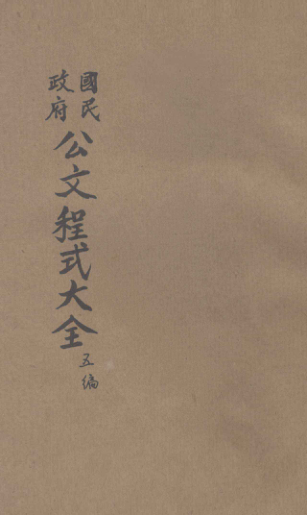 國民
政府
公文程式大全
五編